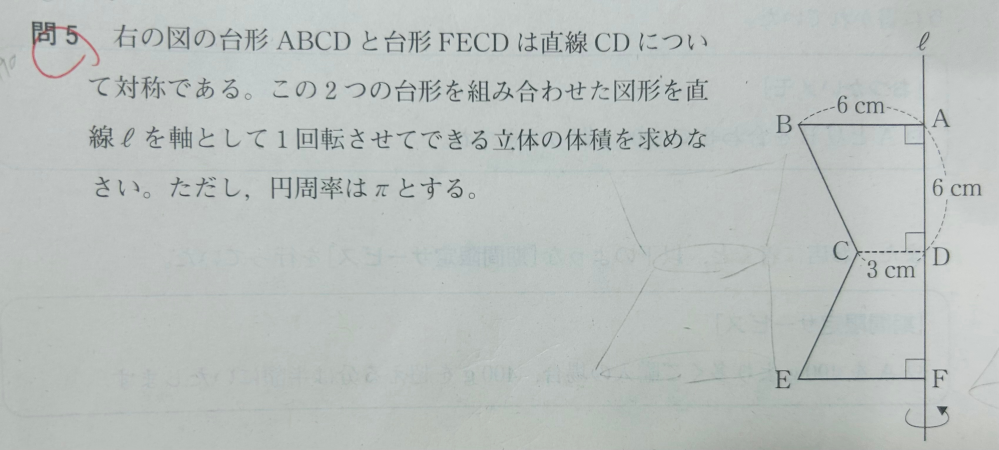 問5 右の図の台形 ABCD と台形 FECD は直線 CD につい
て対称である。この2つの台形を組み合わせた図形を直
線ℓを軸として1回転させてできる立体の体積を求めな
さい。ただし，円周率はπとする。
ℓ
6 cm
B
A
6 cm
C
D
3 cm
E
F